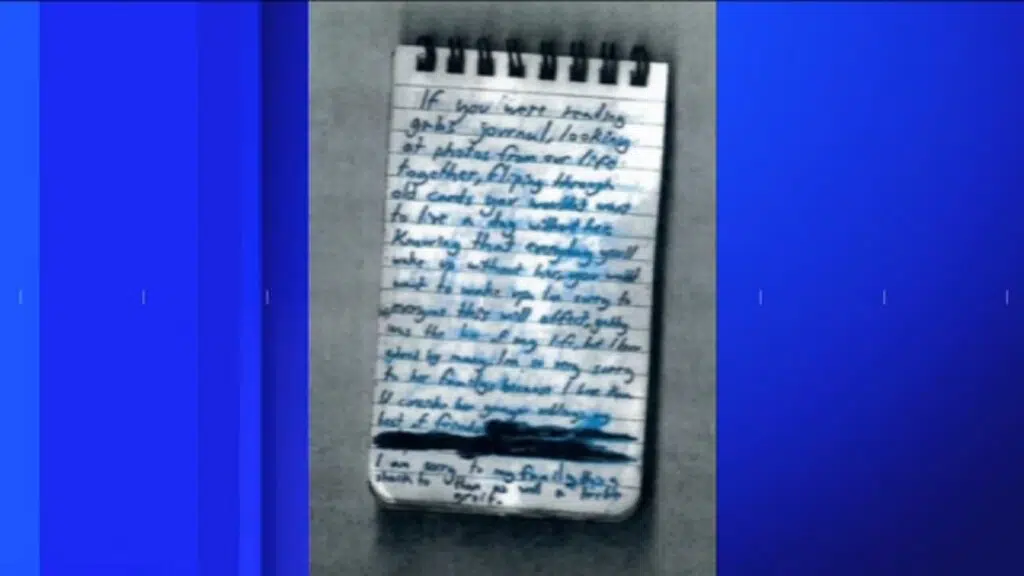 If you were reading
gabs journal, looking
at photos from our life
together, fliping through
old cards you wouldn't want
to live a day without her
Knowing that everyday you'll
wake up without her, you wouldn't
want to wake up. I'm sorry to
everyone this will affect, gabby
was the love of my life, but I know
adored by many. I'm so very sorry
to her family because I love them
I'd consider her younger siblings my
best of friends
I am sorry to my family, this is a
shock to them as well a terrible
grief.